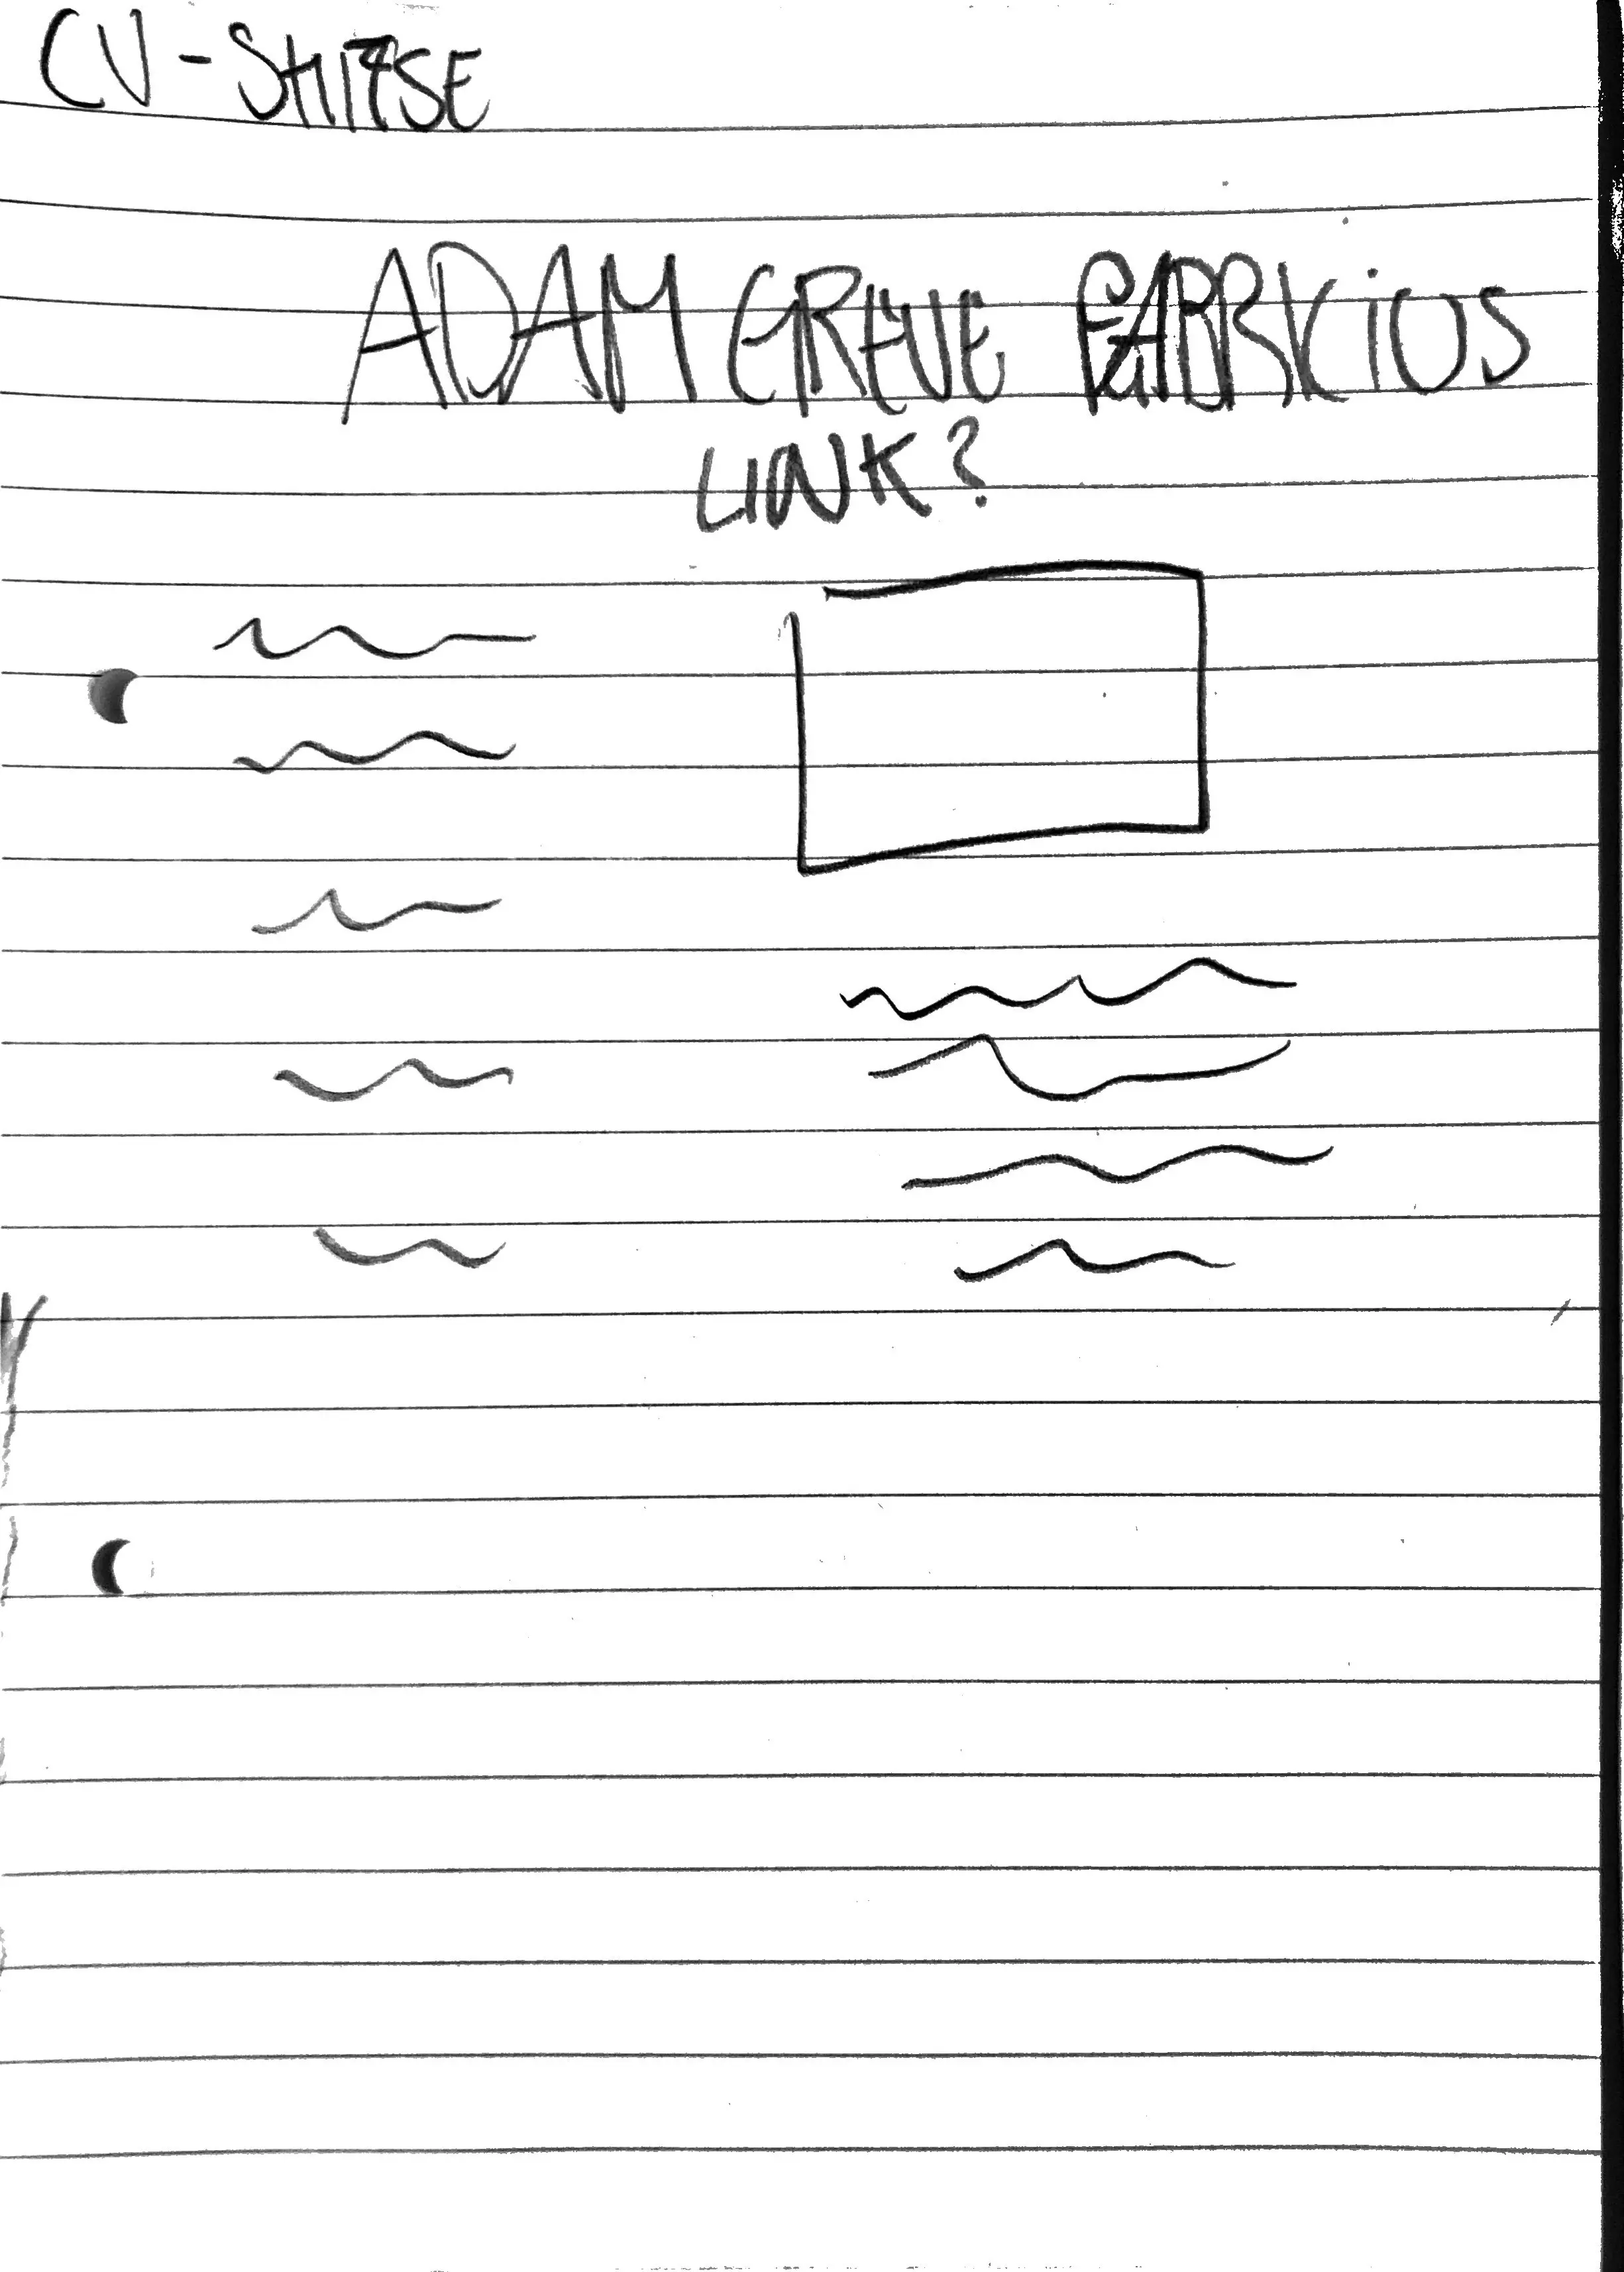 CV - SKITSE
ADAM GREVE FABRICIUS
LINK?